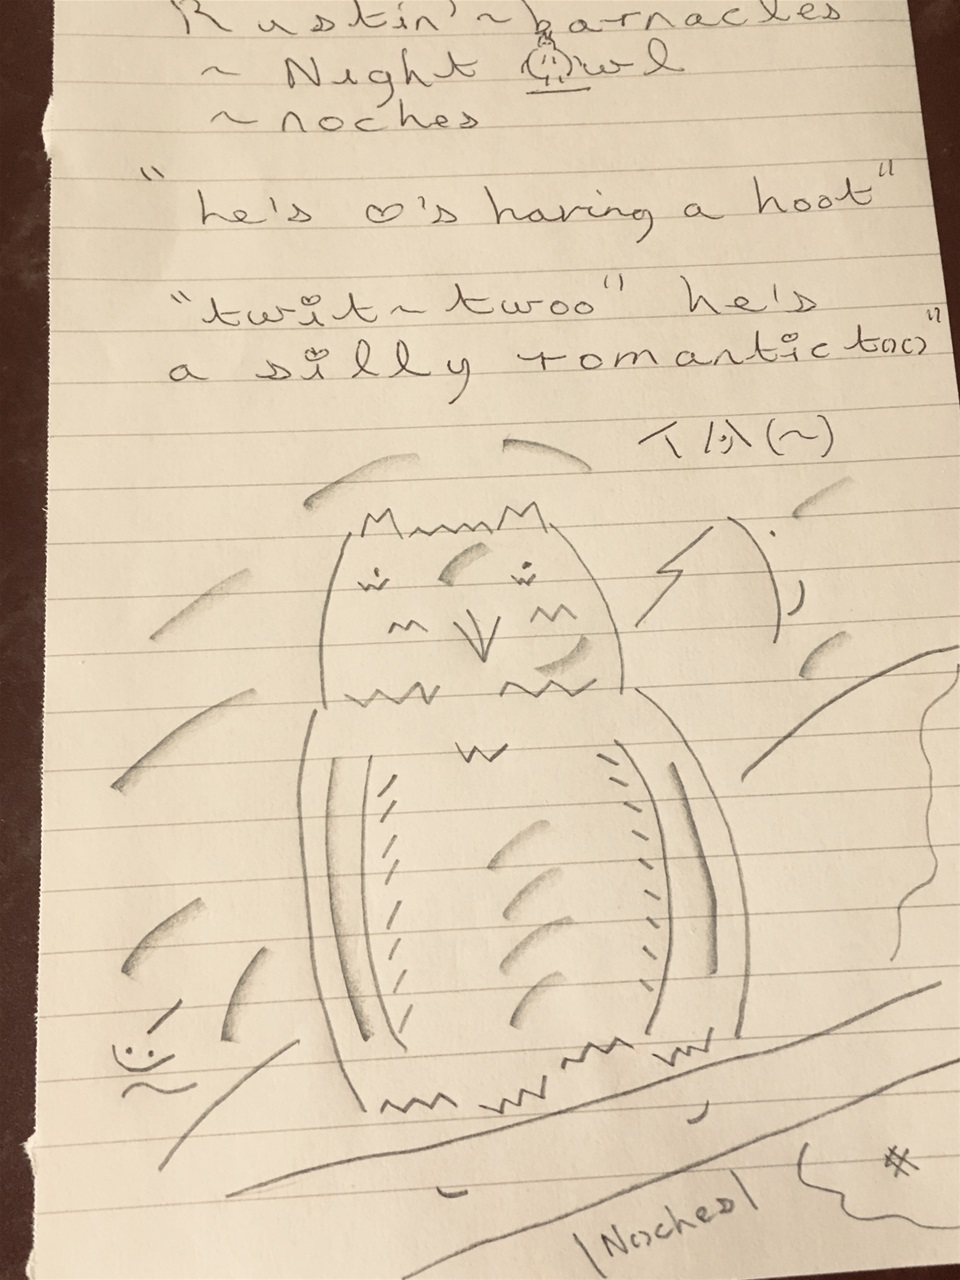 Rustin'~barnacles
~ Night Owl
~ noches
"he's ♡'s having a hoot"
"twit~twoo" he's
a silly romantic too"
|Noches|
#